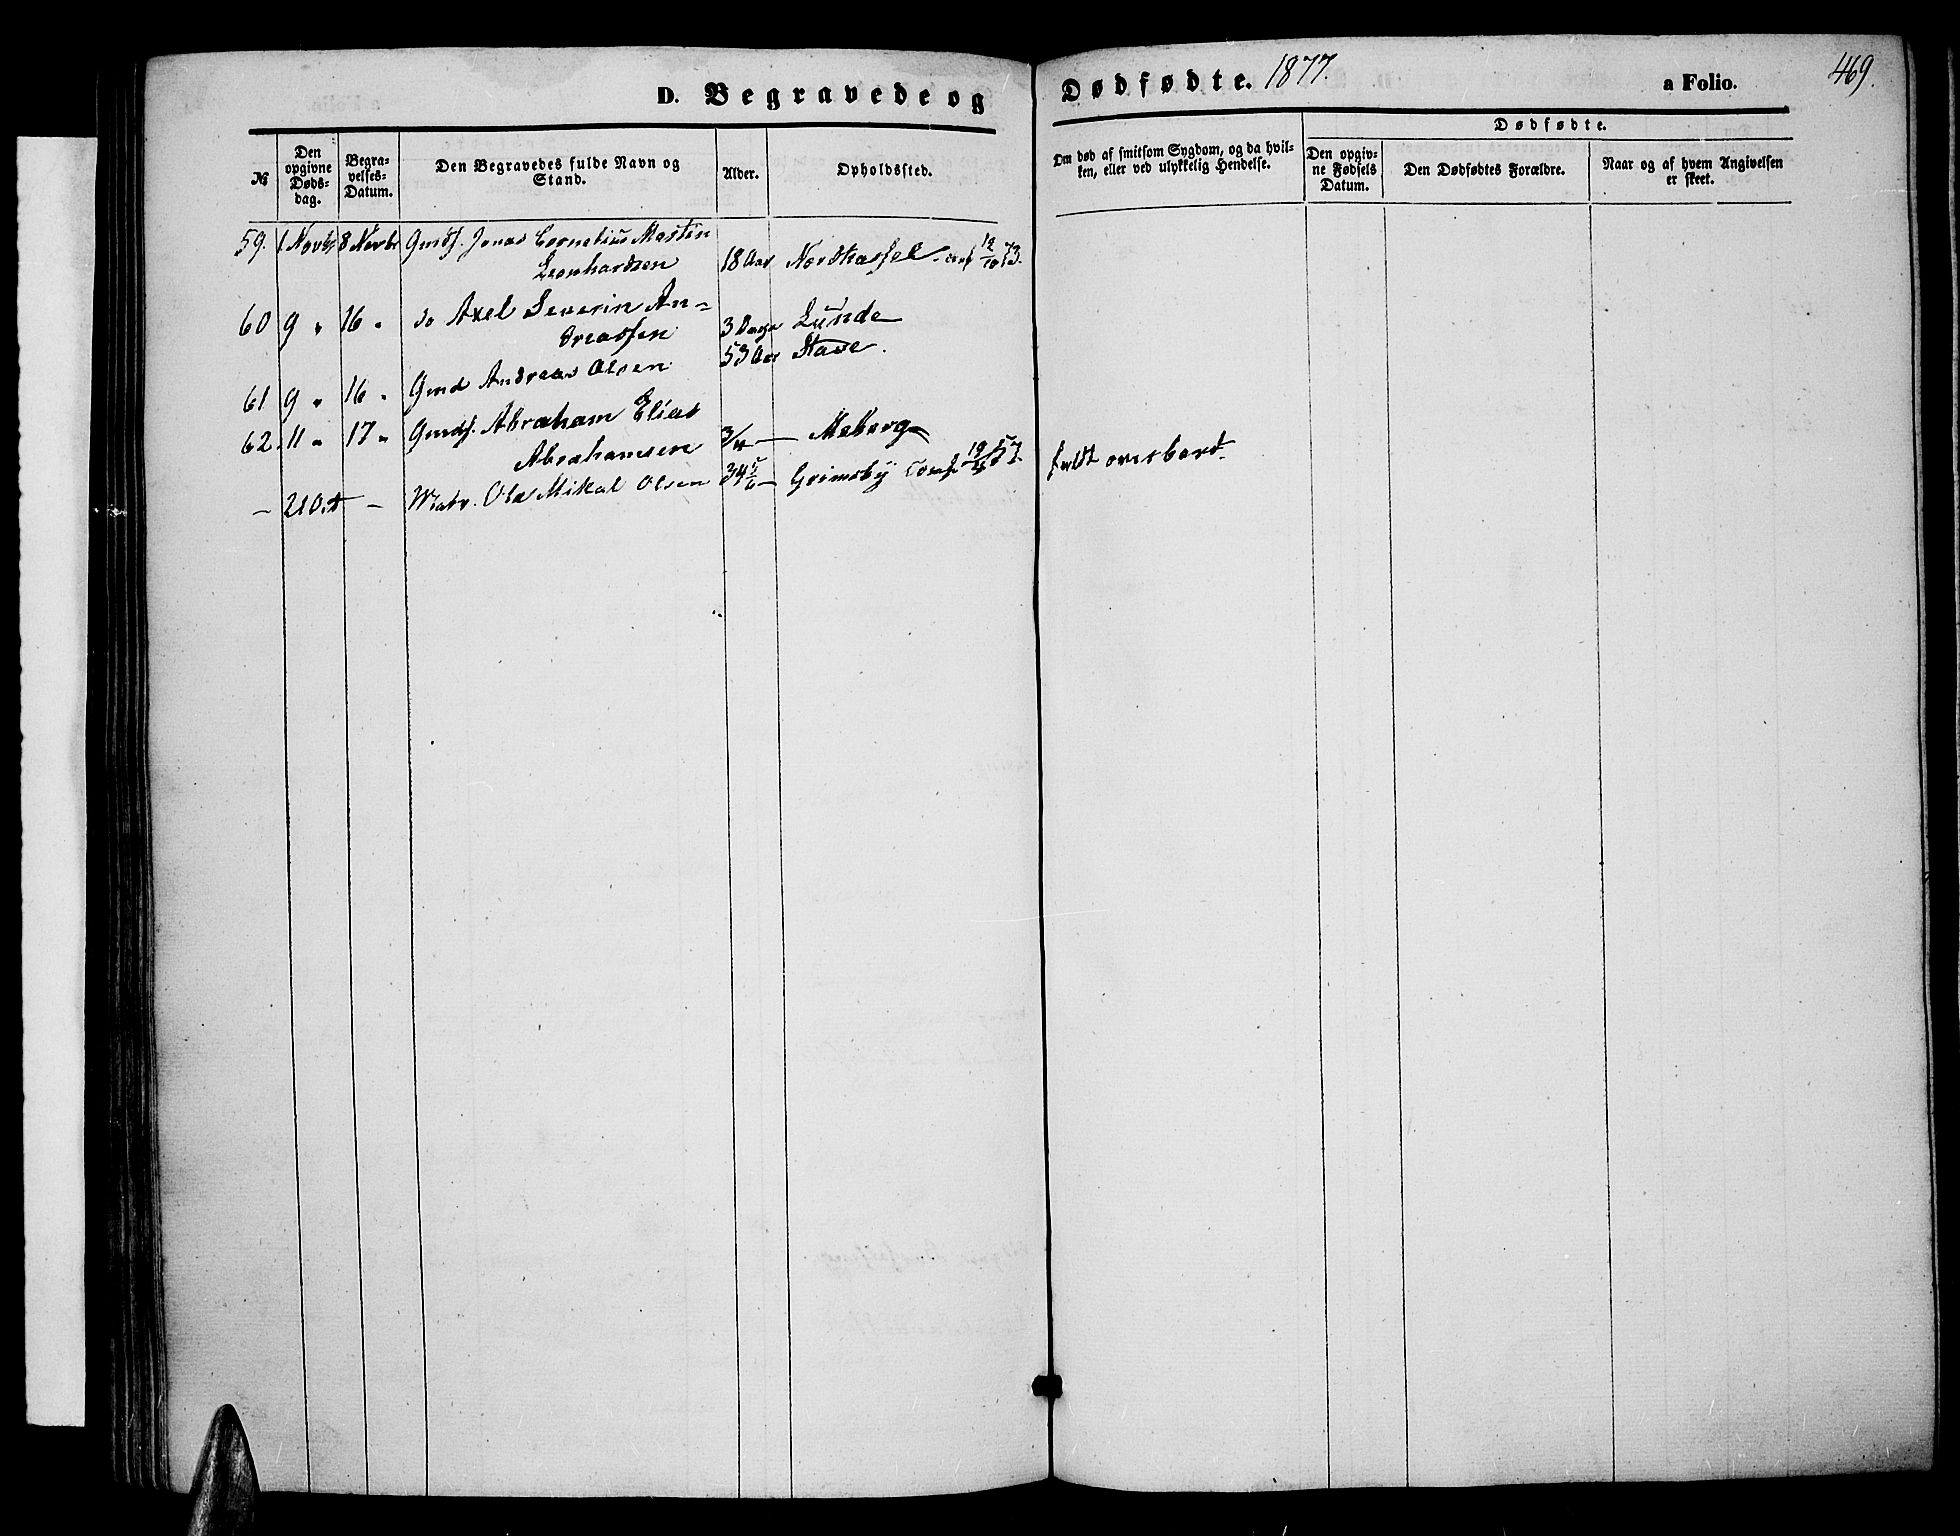 D. Begravede og Dødfødte. 1877. a Folio. 469.
№
Den opgivne Døds-dag.
Begra-velses-Datum.
Den Begravedes fulde Navn og Stand.
Alder.
Opholdssted.
Om død af smitsom Sygdom, og da hvil-ken, eller ved ulykkelig Hendelse.
Dødfødte.
Den opgiv-ne Fødsels Datum.
Den Dødfødtes Forældre.
Naar og af hvem Angivelsen er skeet.
59. 1 Novbr 8 Novbr Gmds. Jonas Cornelius Martin
Leonhardsen 18 Aar Nordhassel conf 12/10 73.
60 9 " 16 " do Axel Severin An-
dreassen 3 Dage Lunde
61 9 " 16 " Gmd Andreas Olsen 53 Aar Stave.
62. 11 " 17 " Gmds. Abraham Elias
Abrahamsen 3/4 — Meberg
— 210.# — Matr. Ole Mikal Olsen 34 5/6 — Grimsby Conf. 57 faldt overbord.